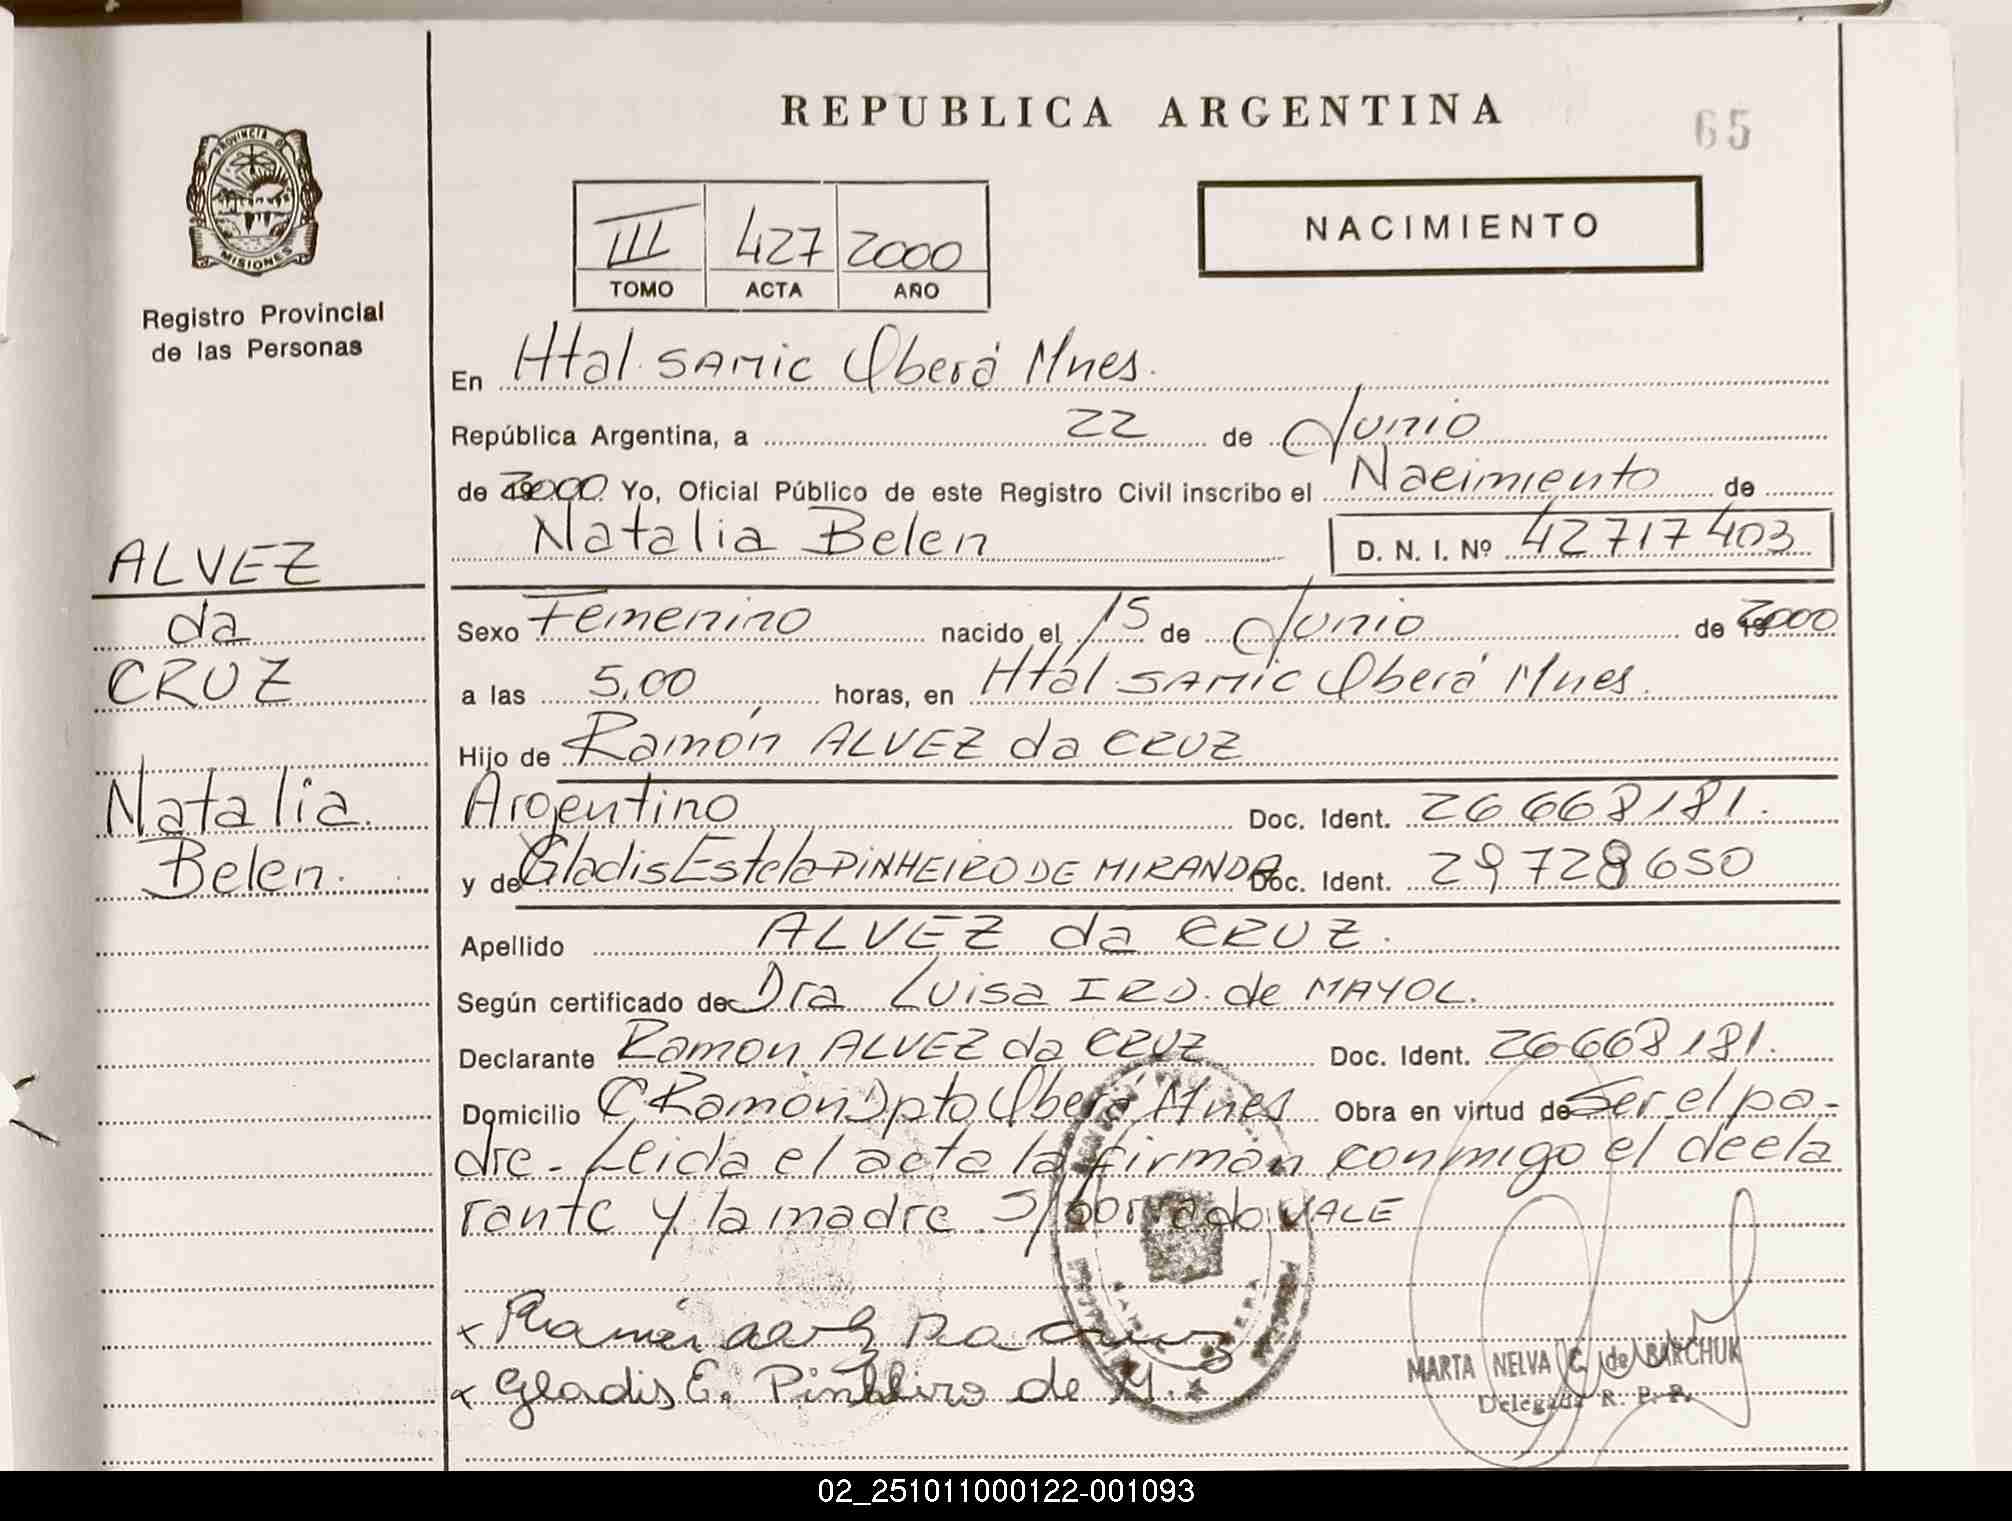 REPUBLICA ARGENTINA
65
PROVINCIA DE
MISIONES
Registro Provincial
de las Personas
III 427 2000
TOMO ACTA AÑO
NACIMIENTO
En Htal. SAMIC Oberá Mnes.
República Argentina, a 22 de Junio
de 2000 Yo, Oficial Público de este Registro Civil inscribo el Nacimiento de
Natalia Belen D. N. I. Nº 42717403
ALVEZ
da
CRUZ
Natalia
Belen.
Sexo Femenino nacido el 15 de Junio de 2000
a las 5,00 horas, en Htal. SAMIC Oberá Mnes.
Hijo de Ramón ALVEZ da CRUZ
Argentino Doc. Ident. 26668181.
y de Gladis Estela PINHEIRO DE MIRANDA Doc. Ident. 29728650
Apellido ALVEZ da CRUZ.
Según certificado de Dra Luisa I RD. de MAYOL.
Declarante Ramon ALVEZ da CRUZ Doc. Ident. 26668181.
Domicilio C Ramón Dpto Oberá Mnes Obra en virtud de Ser el pa-
dre - Leida el acta la firman conmigo el decla
rante y la madre. S/borrado VALE
x Ramón alvez Da cruz
x Gladis E. Pinheiro de M.
MARTA NELVA C. de BARCHUK
Delegada R. P. P.
02_251011000122-001093